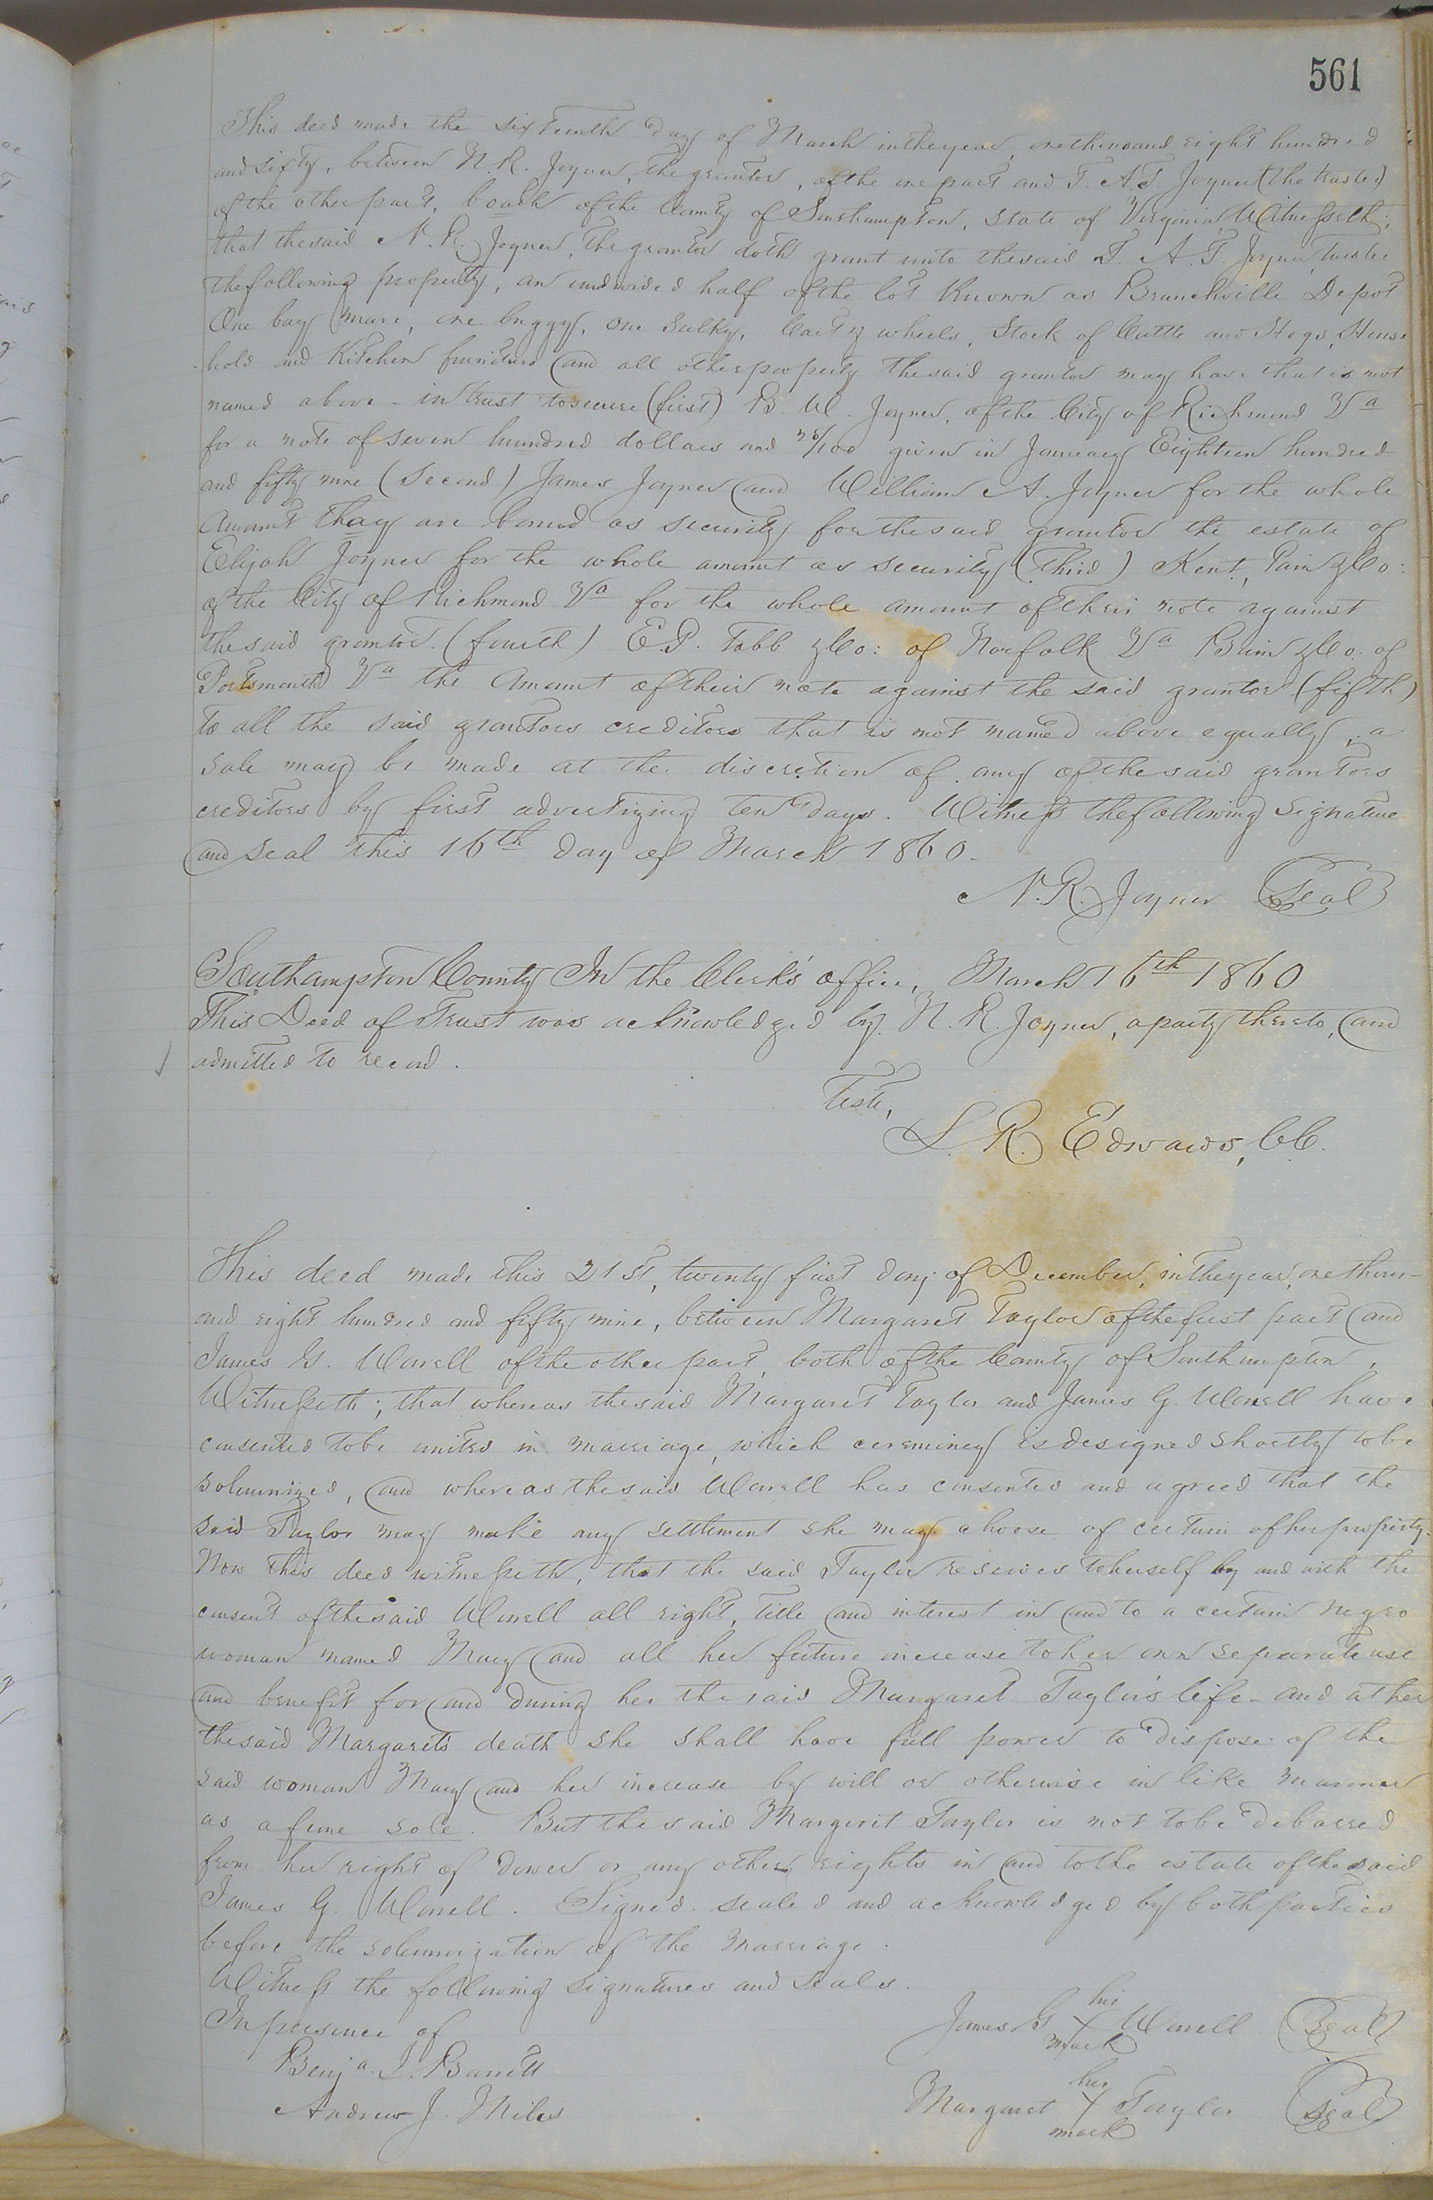 561
This deed made the sixteenth day of March in the year, one thousand eight hundred
and sixty, between N. R. Joyner, the grantor, of the one part and T. A. T. Joyner (the trustee)
of the other part, boath of the County of Southampton, State of Virginia, Witnesseth;
that the said N. R. Joyner, the grantor doth grant unto the said T. A. T. Joyner, trustee
the following property, an undivided half of the lot known as Branchville Depot
One bay mare, one buggy, one sulky, Cart & wheels, Stock of Cattle and Hogs, House
hold and Kitchen furniture and all other property the said grantor may have that is not
named above - in trust to secure (first) B. W. Joyner, of the City of Richmond Va
for a note of seven hundred dollars and /100 given in January Eighteen hundred
and fifty nine (second) James Joyner and William A. Joyner for the whole
Amount thay are bound as security for the said grantor the estate of
Elijah Joyner for the whole amount as security (Third) Kent, Pain & Co:
of the City of Richmond Va for the whole amount of their note against
the said grantor. (fourth) E. P. Tabb & Co: of Norfolk Va Brim & Co. of
Portsmouth Va the Amount of their note against the said grantor (fifth)
to all the said grantors creditors that is not named above equally; a
sale may be made at the discretion of any of the said grantors
creditors by first advertizing ten days. Witness the following signature
and seal this 16th day of March 1860.
N. R. Joyner Seal
Southampton County In the Clerk's office, March 16th 1860
This Deed of Trust was acknowledged by N. R. Joyner, a party thereto, and
admitted to record.
Teste,
L. R. Edwards, CC.
This deed made this 21st, twenty first day of December, in the year, one thous-
and eight hundred and fifty nine, between Margaret Taylor of the first part and
James G. Worrell of the other part, both of the County of Southampton,
Witnesseth; that whereas the said Margaret Taylor and James G. Worrell have
consented to be united in marriage, which cereminey is designed shortly to be
solemnized, and whereas the said Worrell has consented and agreed that the
said Taylor may make any settlement she may choose of certain of her property.
Now this deed witnesseth, that the said Taylor reserves to herself by and with the
consent of the said Worrell all right, title and interest in and to a certain negro
woman named Mary and all her future increase to her own separate use
and benefit for and during her the said Margaret Taylor's life - and at her
the said Margaret's death she shall have full power to dispose of the
said woman Mary and her increase by will or otherwise in like manner
as a feme sole. But the said Margerit Taylor is not to be debarred
from her right of dower or any other rights in and to the estate of the said
James G. Worrell. Signed, sealed and acknowledged by both parties
before the solemnization of the marriage.
Witness the following signatures and seals.
In presence of
James G his X mark Worrell Seal
Benja. J. Barrett
Andrew J. Miles
Margaret her X mark Taylor Seal